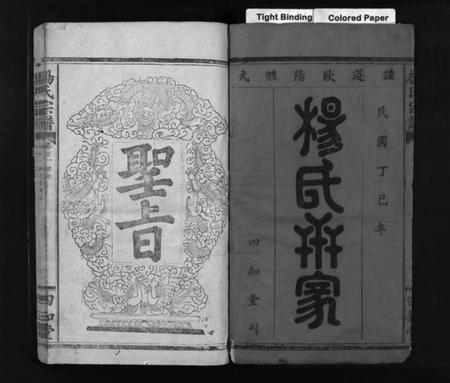 Tight Binding
Colored Paper
謹遵歐陽體式
民國丁巳年
楊氏宗家
四知堂刊
聖旨
楊氏宗譜
四知堂